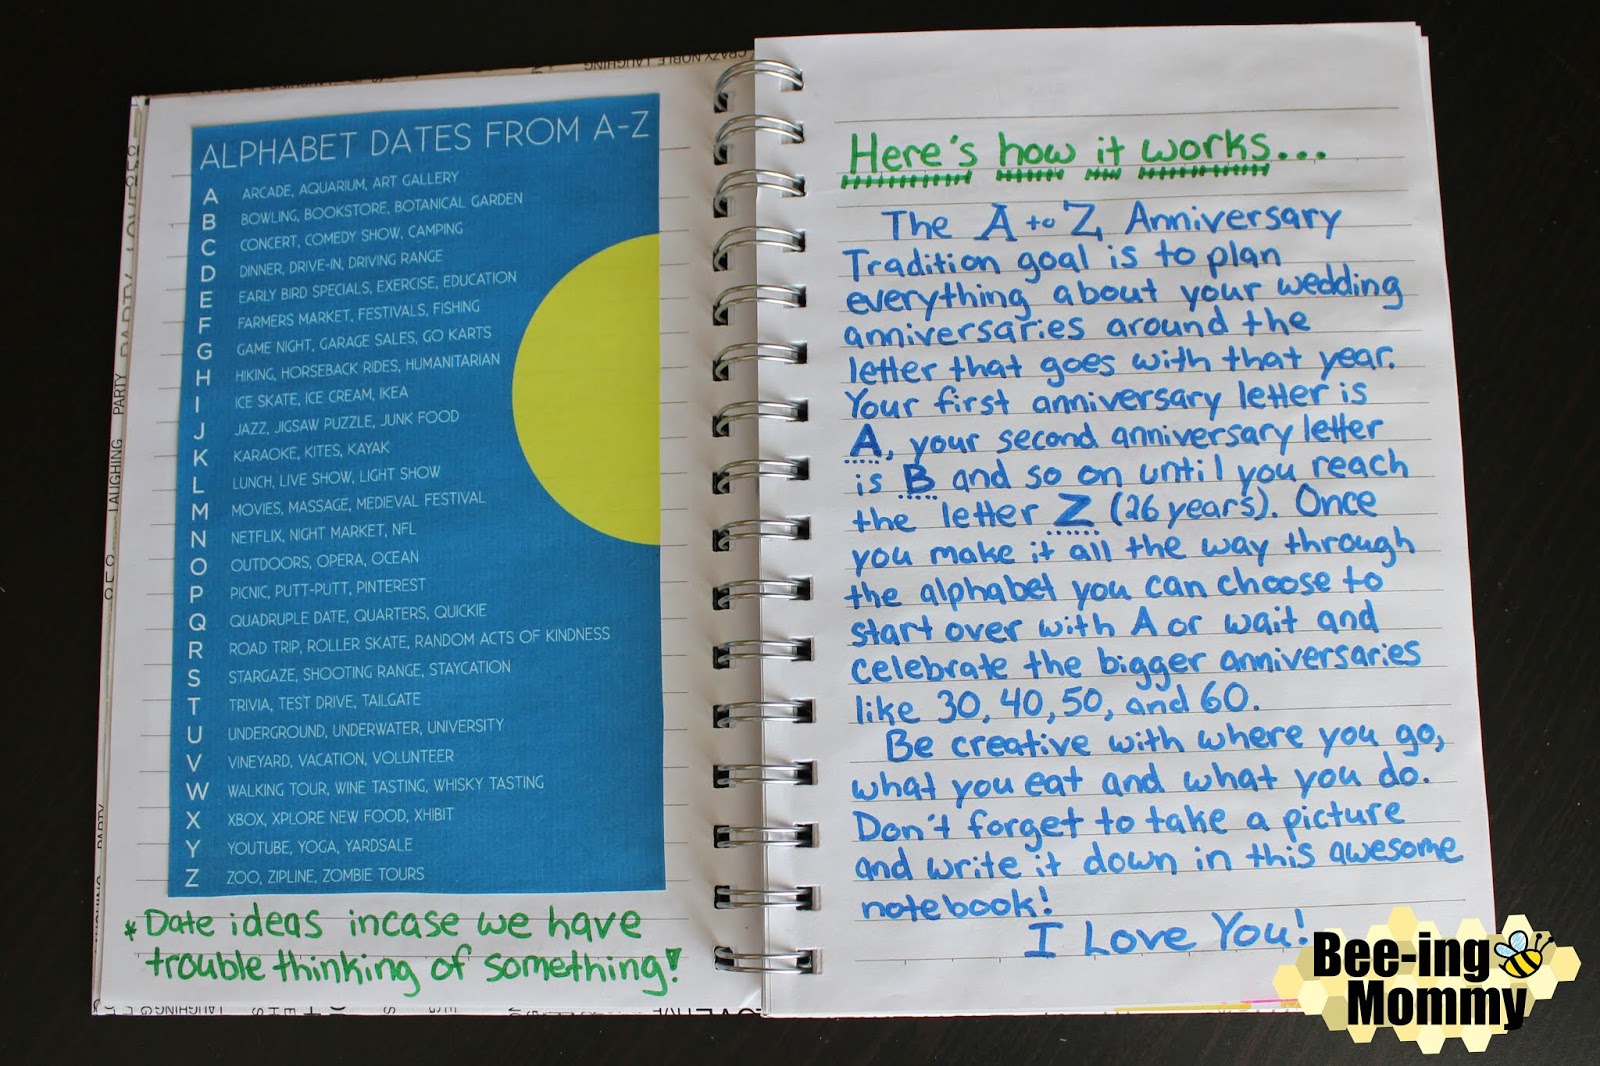 ALPHABET DATES FROM A-Z
A ARCADE, AQUARIUM, ART GALLERY
B BOWLING, BOOKSTORE, BOTANICAL GARDEN
C CONCERT, COMEDY SHOW, CAMPING
D DINNER, DRIVE-IN, DRIVING RANGE
E EARLY BIRD SPECIALS, EXERCISE, EDUCATION
F FARMERS MARKET, FESTIVALS, FISHING
G GAME NIGHT, GARAGE SALES, GO KARTS
H HIKING, HORSEBACK RIDES, HUMANITARIAN
I ICE SKATE, ICE CREAM, IKEA
J JAZZ, JIGSAW PUZZLE, JUNK FOOD
K KARAOKE, KITES, KAYAK
L LUNCH, LIVE SHOW, LIGHT SHOW
M MOVIES, MASSAGE, MEDIEVAL FESTIVAL
N NETFLIX, NIGHT MARKET, NFL
O OUTDOORS, OPERA, OCEAN
P PICNIC, PUTT-PUTT, PINTEREST
Q QUADRUPLE DATE, QUARTERS, QUICKIE
R ROAD TRIP, ROLLER SKATE, RANDOM ACTS OF KINDNESS
S STARGAZE, SHOOTING RANGE, STAYCATION
T TRIVIA, TEST DRIVE, TAILGATE
U UNDERGROUND, UNDERWATER, UNIVERSITY
V VINEYARD, VACATION, VOLUNTEER
W WALKING TOUR, WINE TASTING, WHISKY TASTING
X XBOX, XPLORE NEW FOOD, XHIBIT
Y YOUTUBE, YOGA, YARDSALE
Z ZOO, ZIPLINE, ZOMBIE TOURS
*Date ideas incase we have
trouble thinking of something!
Here's how it works...
The A to Z Anniversary
Tradition goal is to plan
everything about your wedding
anniversaries around the
letter that goes with that year.
Your first anniversary letter is
A, your second anniversary letter
is B and so on until you reach
the letter Z (26 years). Once
you make it all the way through
the alphabet you can choose to
start over with A or wait and
celebrate the bigger anniversaries
like 30, 40, 50, and 60.
Be creative with where you go,
what you eat and what you do.
Don't forget to take a picture
and write it down in this awesome
notebook!
I Love You!
Bee-ing
Mommy
LAUGHING PARTY PARTY LOVE
CRAZY NOBLE LAUGHING